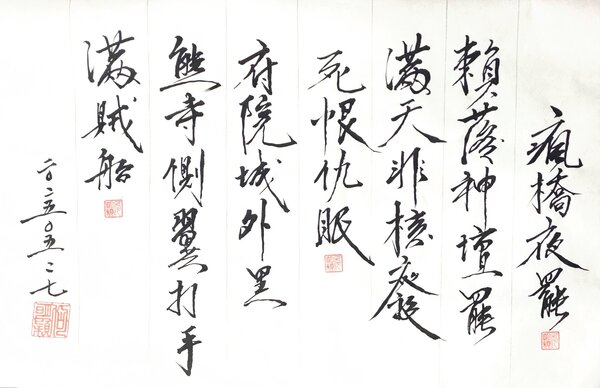 瘋橋夜罷
賴落神壇罷
滿天非核廢
死恨仇眠
府院城外黑
熊寺側翼打手
滿賊船
二〇二五〇五二七